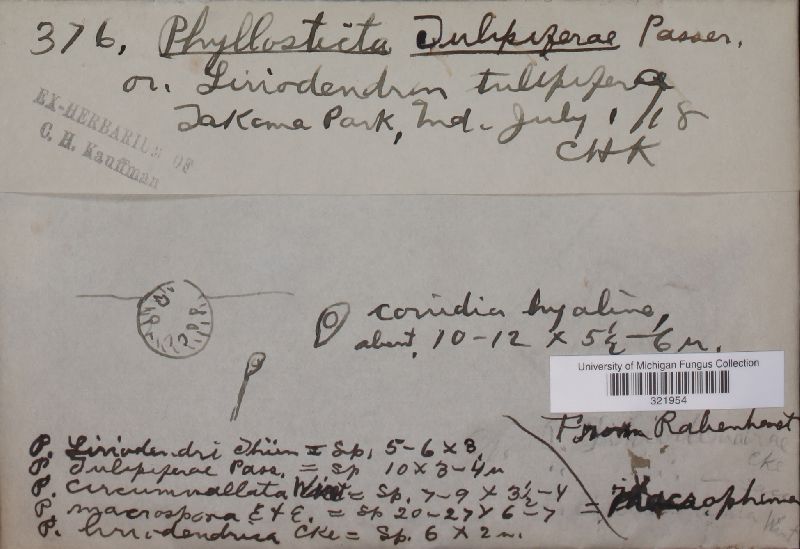 376. Phyllosticta Tulipiferae Passer.
on Liriodendron tulipifera
Takoma Park, Md. July 1/18
CHK
EX-HERBARIUM OF
C. H. Kauffman
conidia hyaline,
about 10-12 x 5½-6 µ.
University of Michigan Fungus Collection
321954
From Rabenhorst
P. Liriodendri Thüm = Sp. 5-6 x 3.
P. Tulipiferae Pass. = sp 10 x 3-4µ
P. circumvallata Wint = Sp. 7-9 x 3½-4
P. macrospora E & E. = Sp 20-27 x 6-7
P. liriodendrica Cke = Sp. 6 x 2 µ.